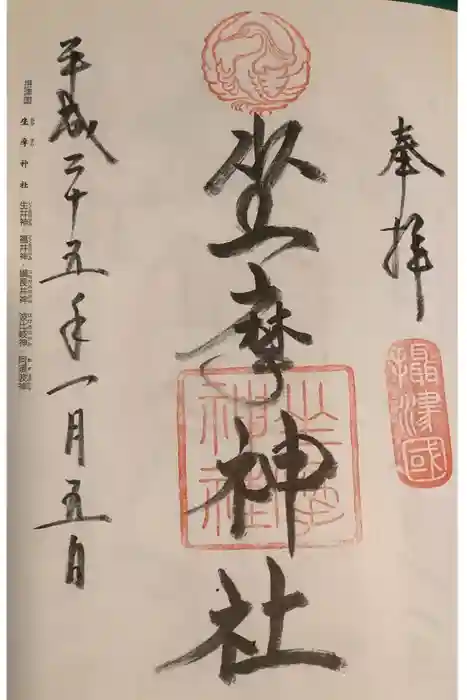 奉拝
攝津國
坐摩神社
坐摩
神社
平成二十五年一月五日
摂津國 坐摩神社 生井神・福井神・綱長井神 波比岐神・阿須波神